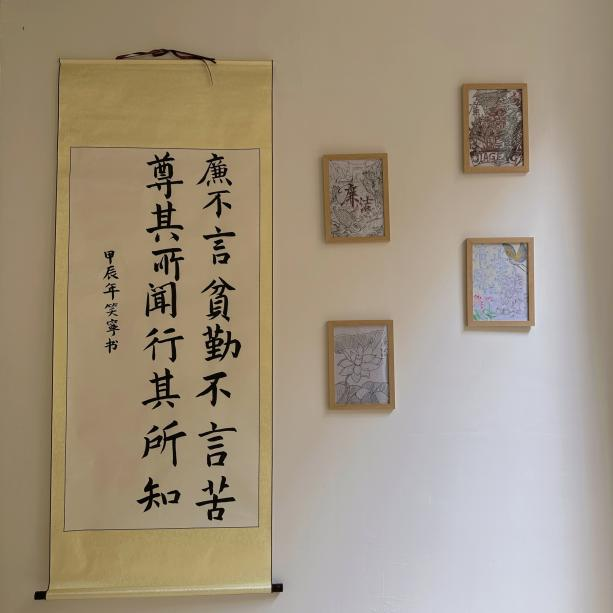 廉不言貧勤不言苦
尊其所闻行其所知
甲辰年笑寧书
廉洁
廉